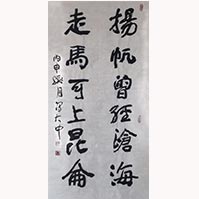 揚帆曾經滄海
走馬可上昆侖
丙申 月 大中